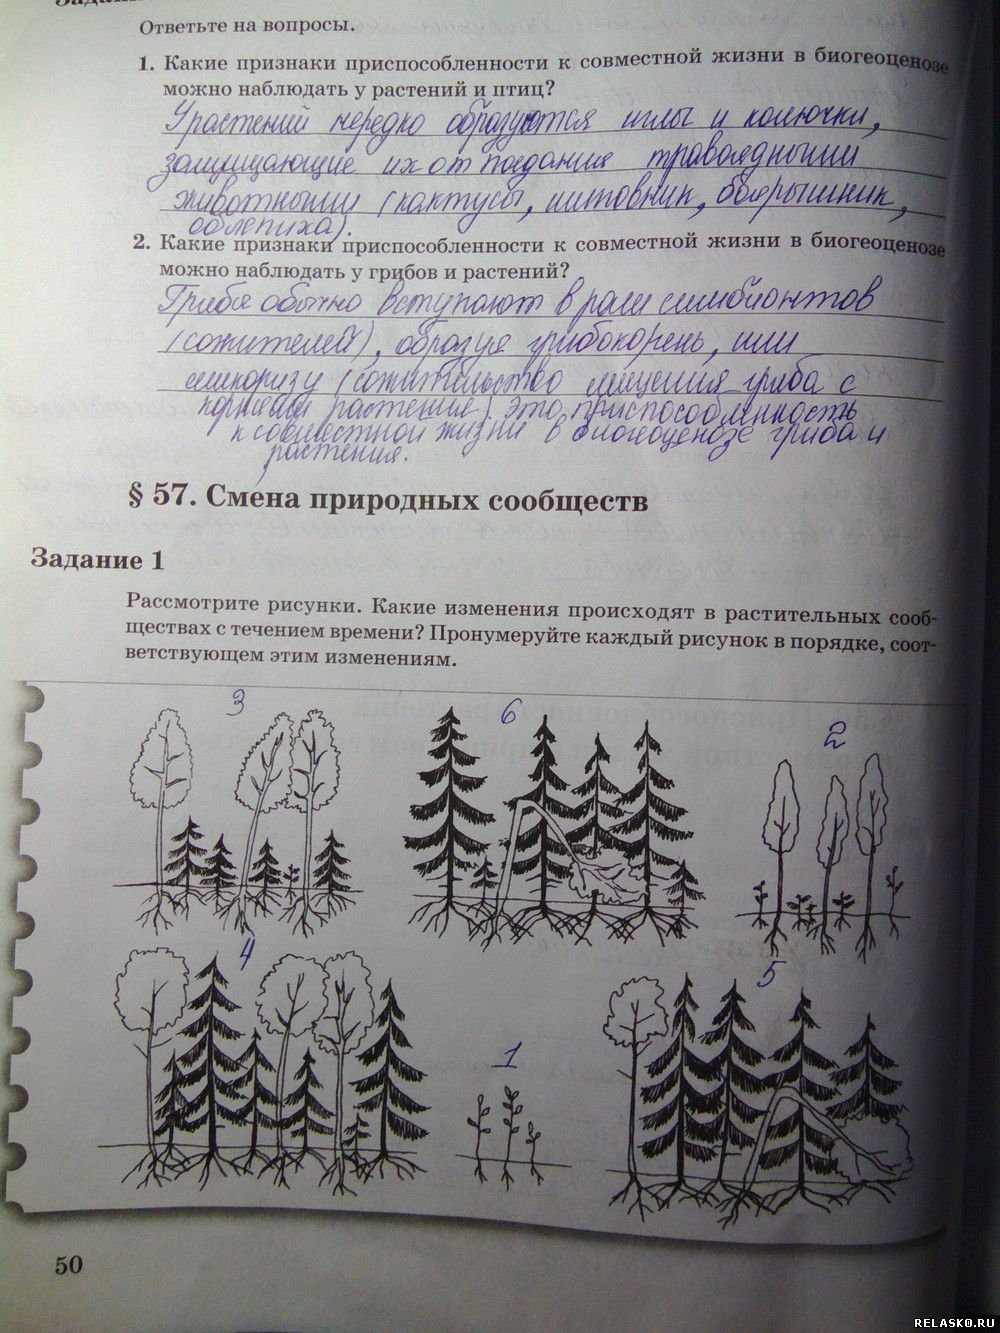 Ответьте на вопросы.
1. Какие признаки приспособленности к совместной жизни в биогеоценозе
можно наблюдать у растений и птиц?
У растений нередко образуются иглы и колючки,
защищающие их от поедания травоядными
животными (кактусы, шиповник, боярышник,
облепиха).
2. Какие признаки приспособленности к совместной жизни в биогеоценозе
можно наблюдать у грибов и растений?
Грибы обычно вступают в роли симбионтов
(сожителей), образуя грибокорень, или
микоризу (сожительство мицелия гриба с
корнями растения) это приспособленность
к совместной жизни в биогеоценозе гриба и
растения.
§ 57. Смена природных сообществ
Задание 1
Рассмотрите рисунки. Какие изменения происходят в растительных сооб-
ществах с течением времени? Пронумеруйте каждый рисунок в порядке, соот-
ветствующем этим изменениям.
3 6 2
4 1 5
50
RELASKO.RU